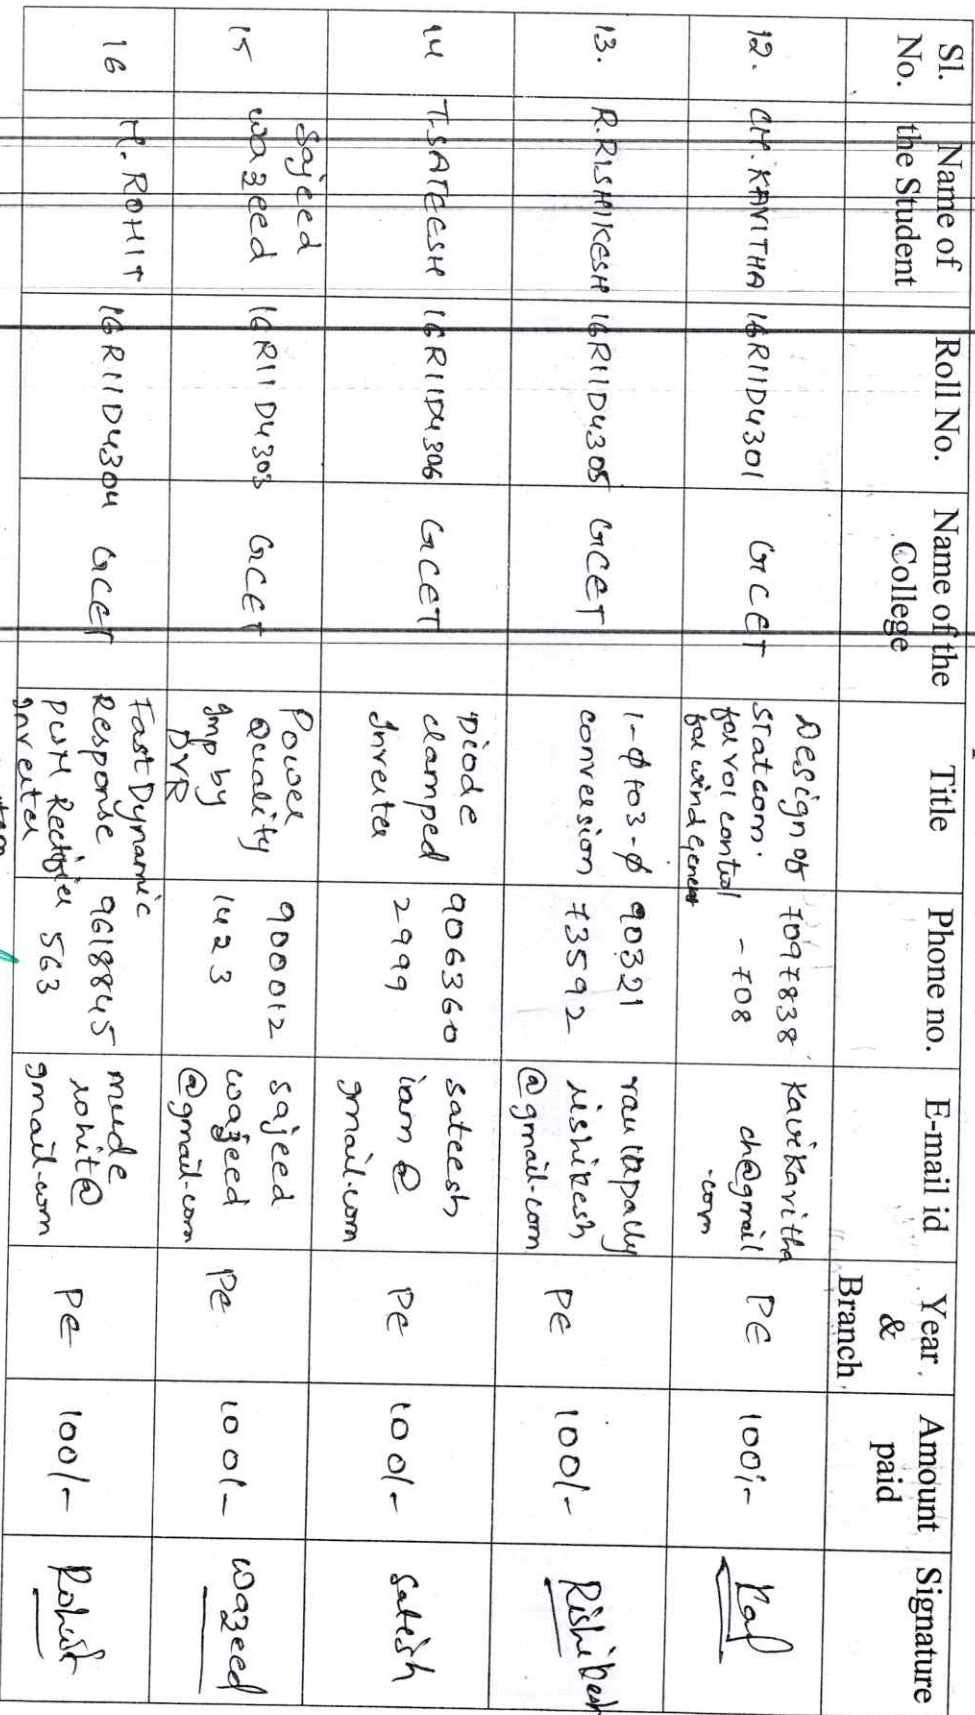 Sl. No. Name of the Student Roll No. Name of the College Title Phone no. E-mail id Year & Branch Amount paid Signature
12. CH. KAVITHA 16R11D4301 GCET Design of Statcom. for vol control for wind Gener 7097838 -708 Kavikavitha ch@gmail .com PE 100/-
13. R. RISHIKESH 16R11D4305 GCET 1-ϕ to 3-ϕ conversion 90321 73592 rishikesh @gmail.com PE 100/- Rishikesh
14 T. SATEESH 16R11D4306 GCET Diode clamped Inverter 906360 2999 sateesh iam@ gmail.com PE 100/- Satish
15 Sajeed wazeed 16R11D4303 GCET Power Quality Imp by DVR 900012 1423 sajeed wazeed @gmail.com PE 100/- Wazeed
16 M. ROHIT 16R11D4304 GCET Fast Dynamic Response PWM Rectifier Inverter 9618845 563 mude rohit@ gmail.com PE 100/- Rohit